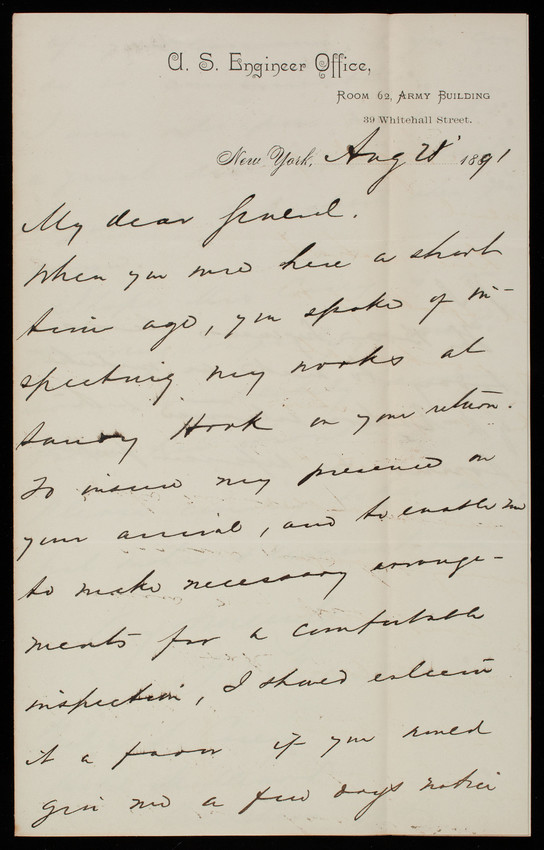 U. S. Engineer Office,
Room 62, Army Building
39 Whitehall Street.
New York, Aug 28 1891
My dear General.
When you were here a short
time ago, you spoke of in-
specting my works at
Sandy Hook on your return.
To insure my presence on
your arrival, and to enable me
to make necessary arrange-
ments for a comfortable
inspection, I should esteem
it a favor if you would
give me a few days notice